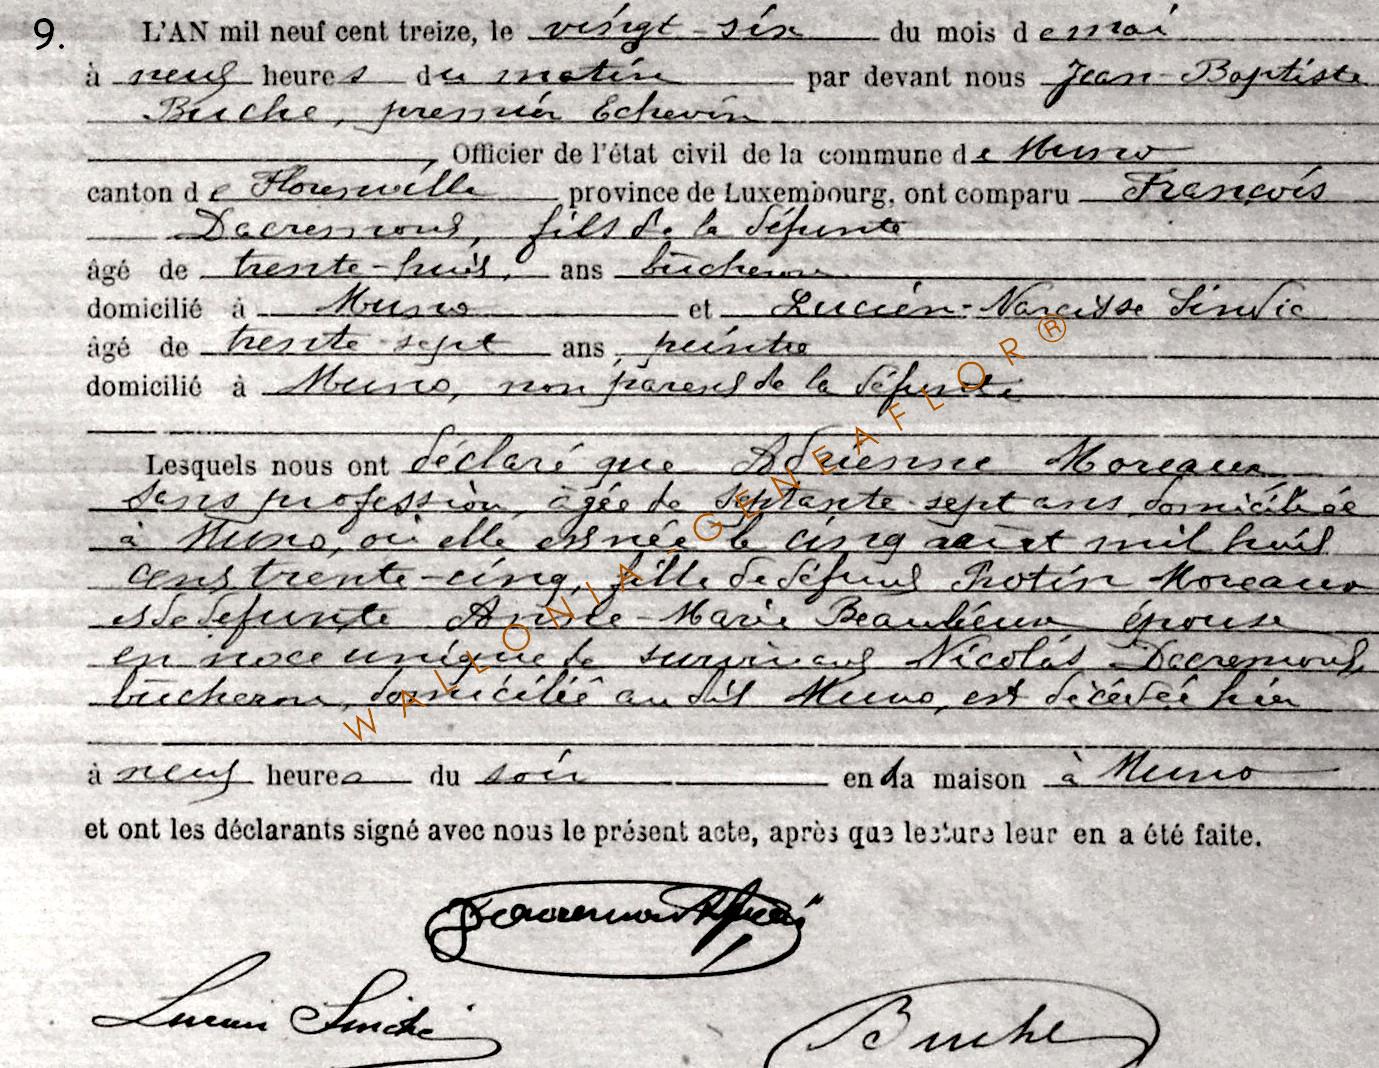 9. L'AN mil neuf cent treize, le vingt-six du mois de mai
à neuf heures du matin par devant nous Jean-Baptiste
Buche, premier Echevin
, Officier de l'état civil de la commune de Muno
canton de Florenville, province de Luxembourg, ont comparu François
Dacremont, fils de la défunte
âgé de trente-huit, ans bûcheron
domicilié à Muno et Lucien-Narcisse Sindic
âgé de trente-sept ans, peintre
domicilié à Muno, non parent de la défunte
Lesquels nous ont déclaré que Adrienne Moreaux
sans profession, âgée de septante-sept ans, domiciliée
à Muno, où elle est née le cinq août mil huit
cent trente-cinq, fille de défunt Protin Moreaux
et de défunte Anne-Marie Beaulieux épouse
en noce unique de survivant Nicolas Dacremont,
bûcheron, domicilié au dit Muno, est décédée hier
à neuf heures du soir en la maison à Muno
et ont les déclarants signé avec nous le présent acte, après que lecture leur en a été faite.
Dacremont
Lucien Sindic
Buche
WALLONIA-GENEAFLOR®